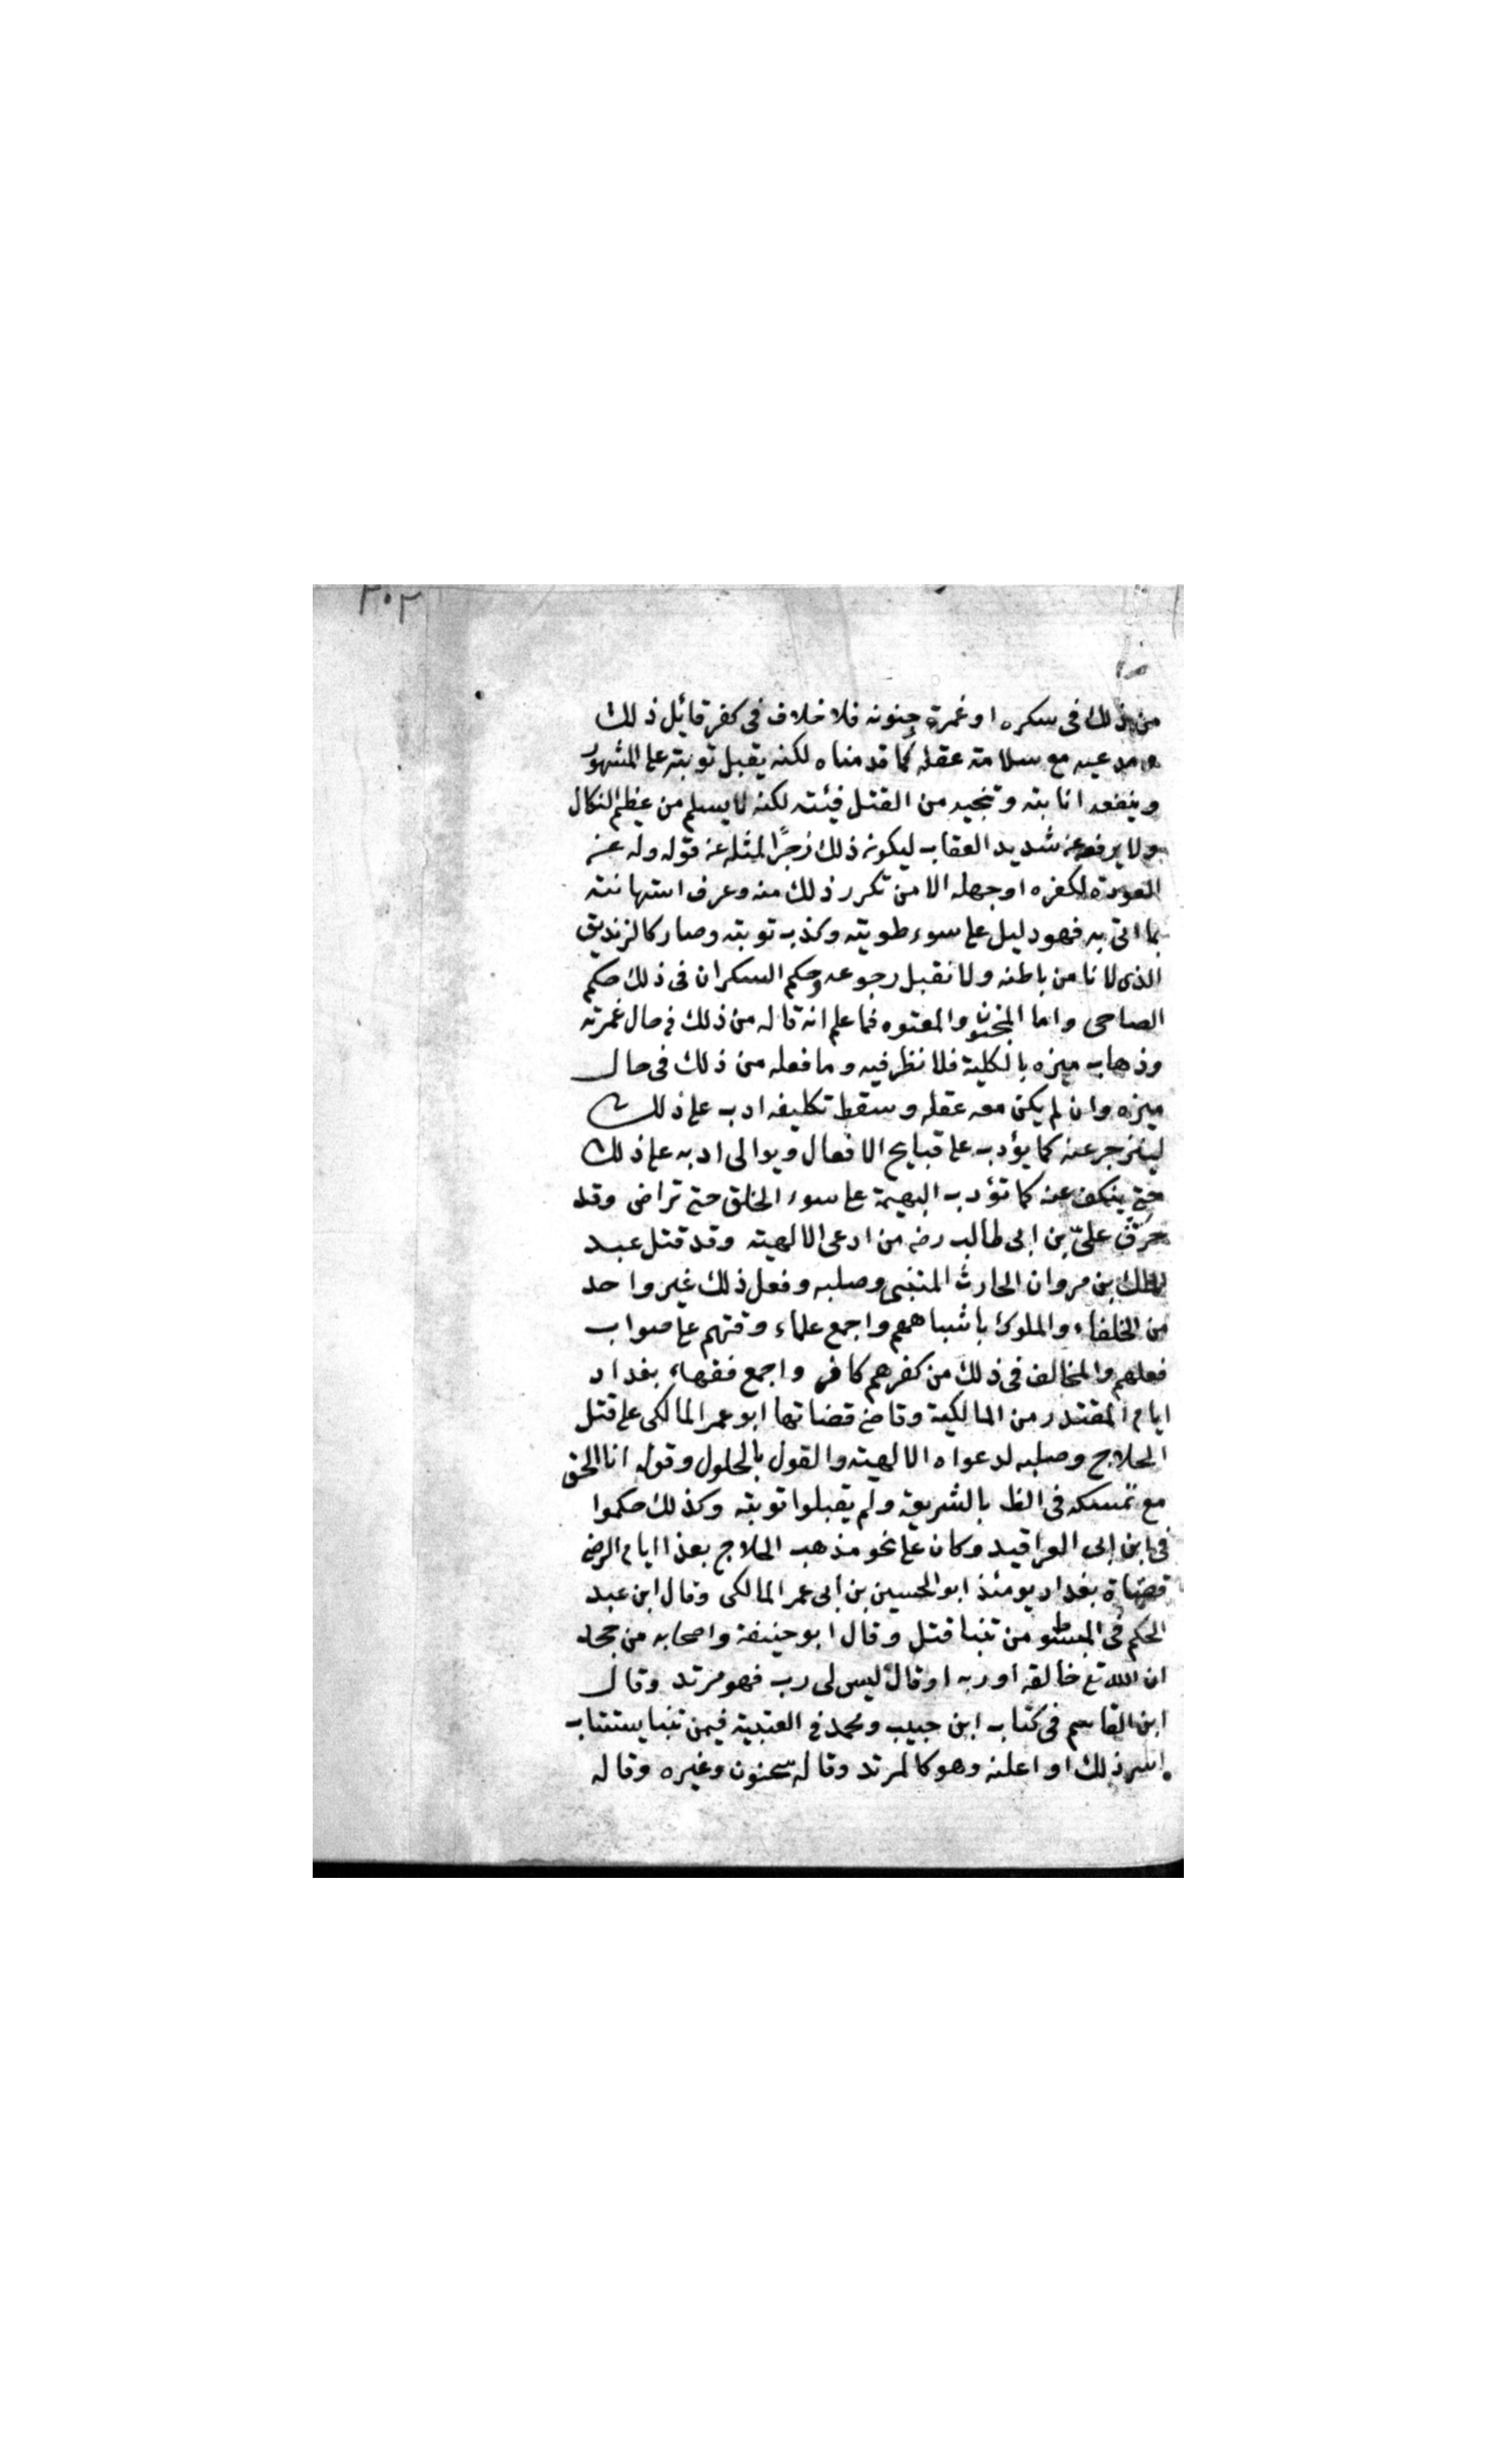 ٣٠٢
من ذلك فى سكره او غمرة جنونه فلا خلاف فى كفر قائل ذلك
ومدعيه مع سلامة عقله كما قدمناه لكنه يقبل توبته على المشهور
وينفعه انابته وتنجيه من القتل فيئته لكنه لا يسلم من عظيم النكال
ولا يرفعه عن شديد العقاب ليكون ذلك زجرًا لمثله عن قوله وله عن
العودة لكفره او جهله الا من تكرر ذلك منه وعرف استهانته
بما اتى به فهو دليل على سوء طويته وكذب توبته وصار كالزنديق
الذى لا نامن باطنه ولا نقبل رجوعه وحكم السكران فى ذلك حكم
الصاحى واما المجنون والمعتوه فما علم انه قاله من ذلك فى حال غمرته
وذهاب ميزه بالكلية فلا نظر فيه وما فعله من ذلك فى حال
ميزه وان لم يكن معه عقله وسقط تكليفه ادب على ذلك
لينزجر عنه كما يؤدب على قبايح الافعال ويوالى ادبه على ذلك
حتى ينكف عنه كما تؤدب البهيمة على سوء الخلق حتى تراض وقد
حرّق علىّ بن ابى طالب رضه من ادعى الالهيته وقد قتل عبد
الملك بن مروان الحارث المتنبى وصلبه وفعل ذلك غير واحد
من الخلفاء والملوك باشباههم واجمع علماء وقتهم على صواب
فعلهم والمخالف فى ذلك من كفرهم كافر واجمع فقهاء بغداد
ايام المقتدر من المالكية وقاضى قضاتها ابو عمر المالكى على قتل
الحلاج وصلبه لدعواه الالهيته والقول بالحلول وقوله انا الحق
مع تمسكه فى الظ بالشريعة ولم يقبلوا توبته وكذلك حكموا
فى ابن ابى العراقيد وكان على نحو مذهب الحلاج بعذا ايام الرضى
قضاة بغداد يومئذ ابو الحسين بن ابى عمر المالكى وقال ابن عبد
الحكم فى المبسوط من تنبا قتل وقال ابو حنيفة واصحابه من جحد
ان الله تع خالقه او ربه او قال ليس لى رب فهو مرتد وقال
ابن القاسم فى كتاب ابن حبيب ومحمد فى العتبية فيمن تنبا يستتاب
اسر ذلك او اعلنه وهو كالمرتد وقاله سحنون وغيره وقاله